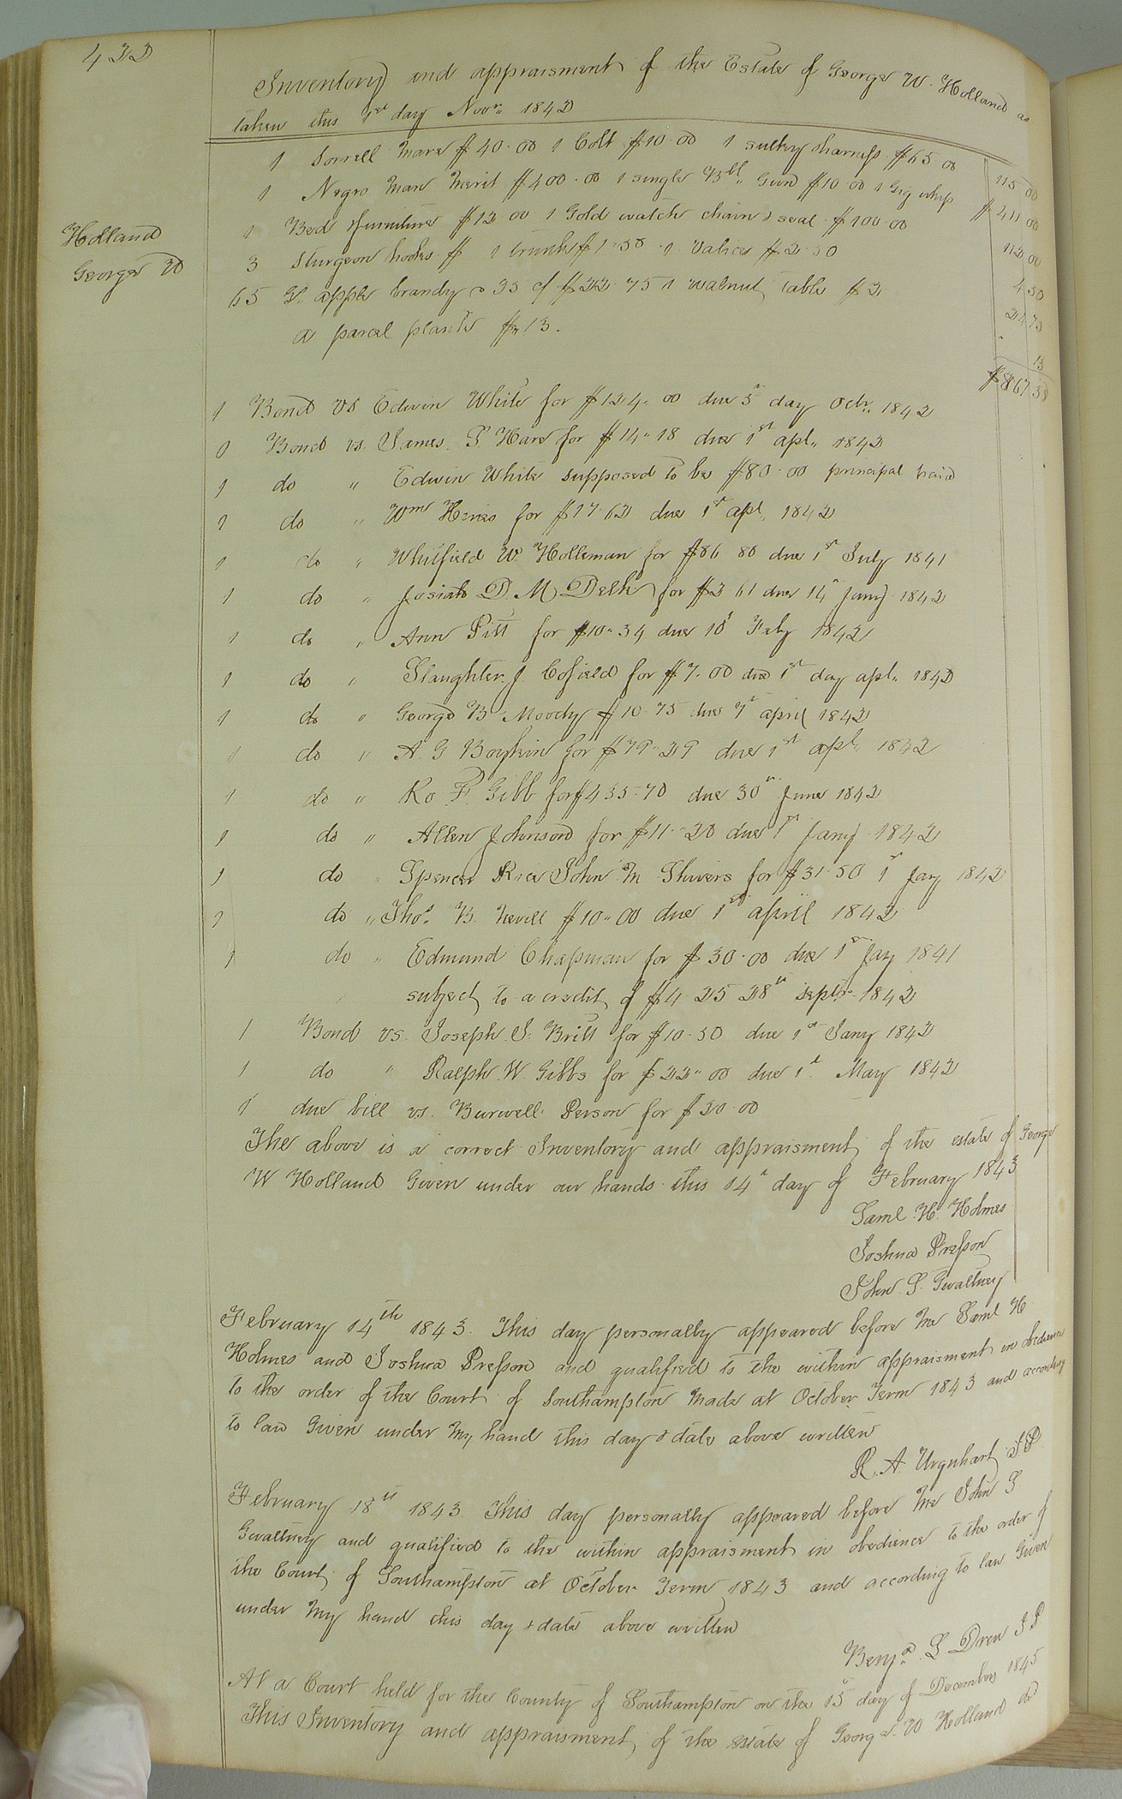 422
Inventory and appraisment of the Estate of George W. Holland as
taken this 1st day Novr. 1842
1 Sorrell Mare $40.00 1 Colt $10.00 1 sulky & harness $65.00 115 00
1 Negro Man Merit $400.00 1 single Bbl. Gun $10 00 1 Gig whip $411 00
1 Bed & furniture $12 00 1 Gold watch chain & seal $100 00 112 00
3 Sturgeon hooks $ 1 trunk $1.50 1 Valice $2.50 4 50
65 G. apple brandy @ 35 c/ $22.75 1 walnut table $2 24 75
a parcel plank $ 13. 13
$867.38
Holland
George W
1 Bond vs Edwin White for $124.00 due 5th day Octr. 1842
1 Bond vs. James S Hare for $14.18 due 1st apl. 1842
1 do " Edwin White supposed to be $80.00 principal paid
1 do " Wm Hines for $17 62 due 1st apl. 1842
1 do " Whitfield W. Holleman for $86 88 due 1st July 1841
1 do " Josiah D. M. Delk for $2 61 due 14th Jany. 1842
1 do " Ann Pitt for $10.34 due 18th Feby 1842
1 do " Slaughter J Cofield for $7.00 due 1st day apl. 1842
1 do " George B. Moody $10.75 due 1st april 1842
1 do " A G Boykin for $79.29 due 1st apl. 1842
1 do " Ro P. Gibb for $455.70 due 30th June 1842
1 do " Allen Johnson for $11.20 due 1st Jany. 1842
1 do " Spencer Rice & John M Shivers for $31.50 1st Jany 1842
1 do " Thos. B. Nevill $10.00 due 1st april 1842
1 do " Edmund Chapman for $30.00 due 1st Jay 1841
subject to a credit of $4 25 28th Septr. 1842
1 Bond vs. Joseph J. Britt for $10.50 due 1st Jany 1842
1 do " Ralph W Gibbs for $22.00 due 1st May 1842
1 due bill vs. Burwell Person for $20.00
The above is a correct Inventory and appraisment of the estate of George
W Holland Given under our hands this 14th day of February 1843
Saml. H. Holmes
Joshua Presson
John S. Gwaltney
February 14th 1843. This day personally appeared before Me Saml H
Holmes and Joshua Presson and qualified to the within appraisment in obedience
to the order of the Court of Southampton Made at October Term 1843 and according
to law Given under My hand this day & date above written
R. A Urquhart JP
February 18th 1843. This day personally appeared before Me John S
Gwaltney and qualified to the within appraisment in obedience to the order of
the Court of Southampton at October Term 1843 and according to law Given
under My hand this day & date above written
Benja. L Drew JP
At a Court held for the County of Southampton on the 15 day of December 1845
This Inventory and appraisment of the estate of George W Holland decd